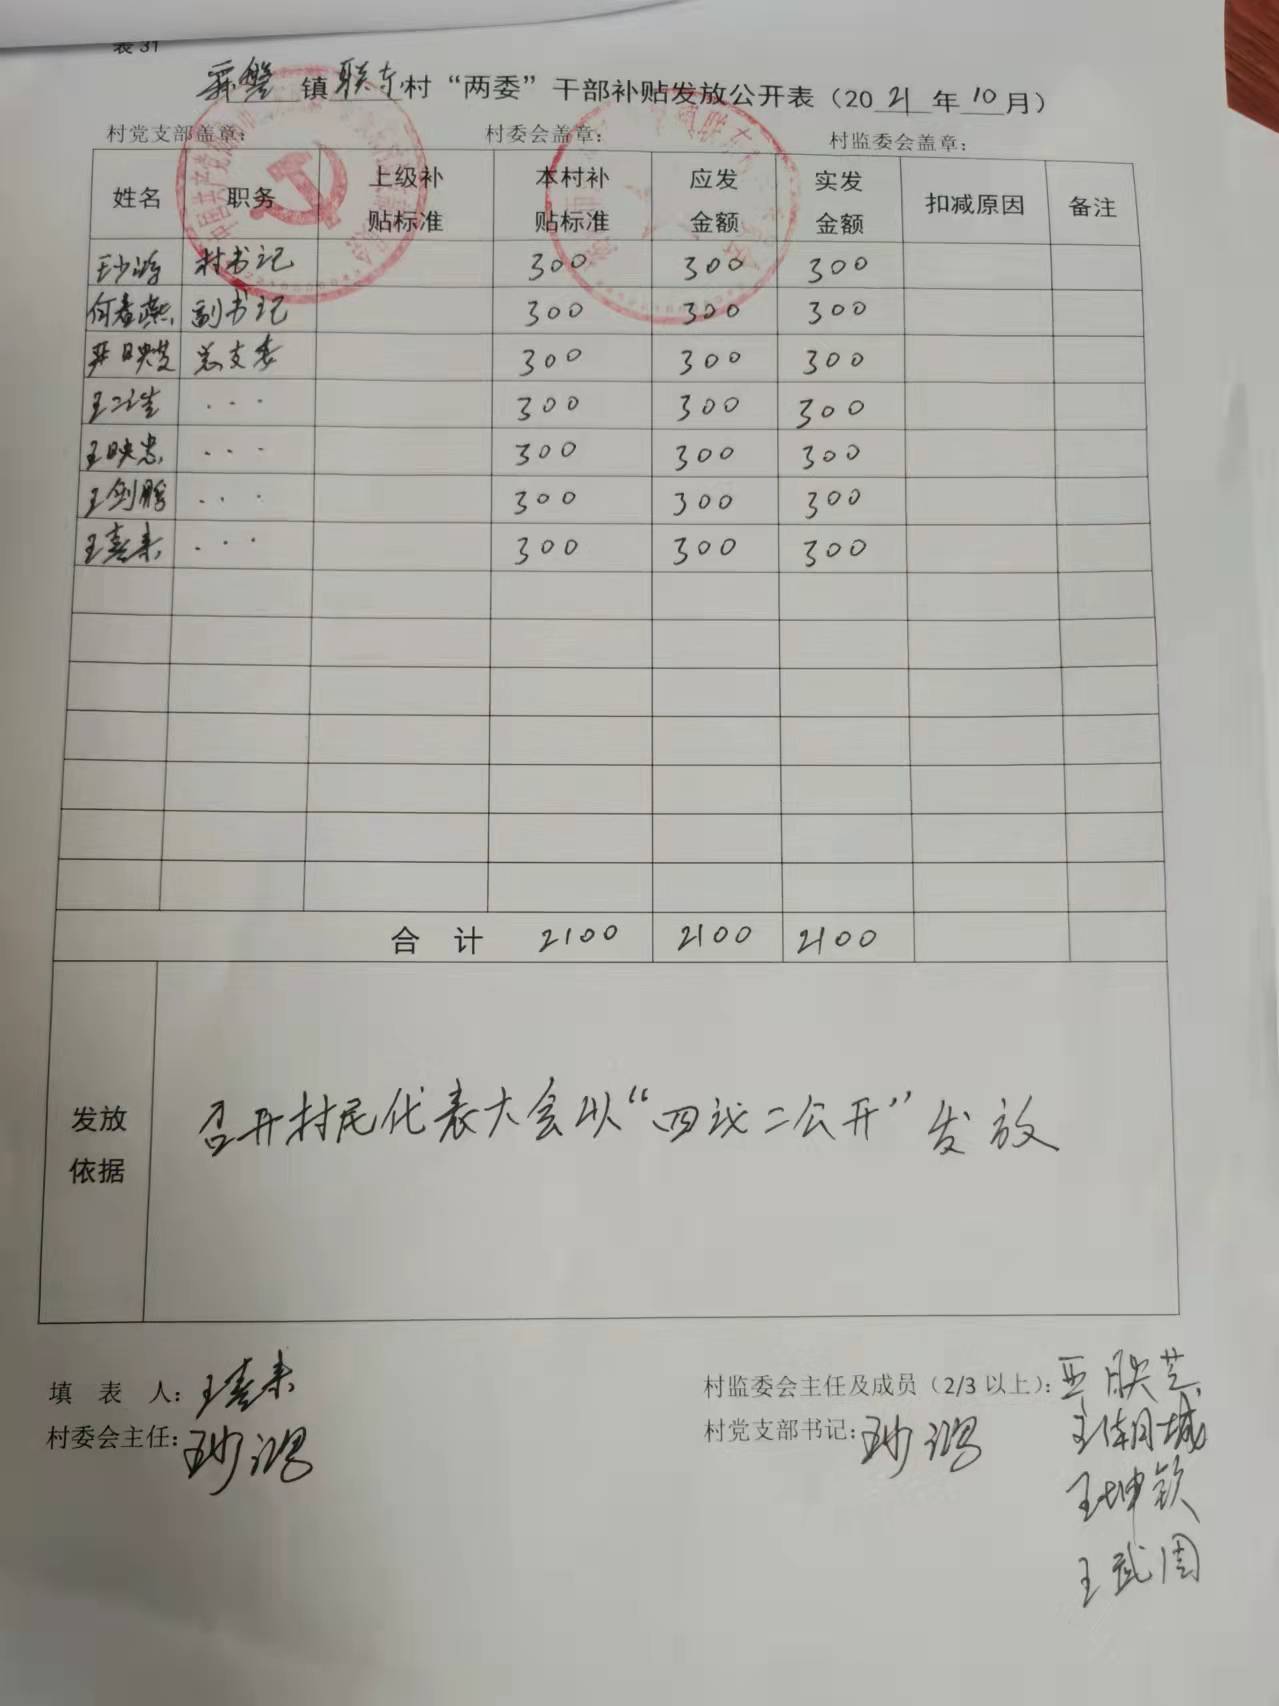 表 31
霖磐镇联东村“两委”干部补贴发放公开表（2021年10月）
村党支部盖章： 村委会盖章： 村监委会盖章：
姓名 职务 上级补贴标准 本村补贴标准 应发金额 实发金额 扣减原因 备注
村书记 300 300 300
何春燕 副书记 300 300 300
映芝 总支委 300 300 300
王二生 ··· 300 300 300
王映忠 ··· 300 300 300
王剑鹏 ··· 300 300 300
王喜来 ··· 300 300 300
合 计 2100 2100 2100
发放依据 召开村民代表大会以“四议二公开”发放
填 表 人：王喜来 村监委会主任及成员（2/3 以上）：映芝
村委会主任： 村党支部书记：
王坤钦
王武周